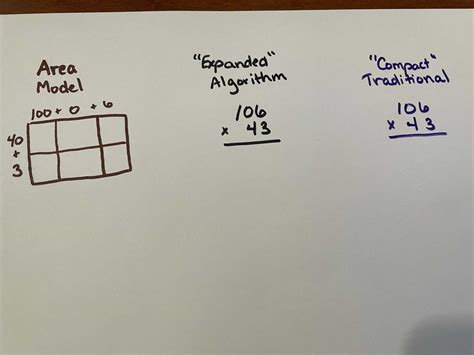 Area
Model
100 + 0 + 6
40
+
3
"Expanded"
Algorithm
106
x 43
"Compact"
Traditional
106
x 43